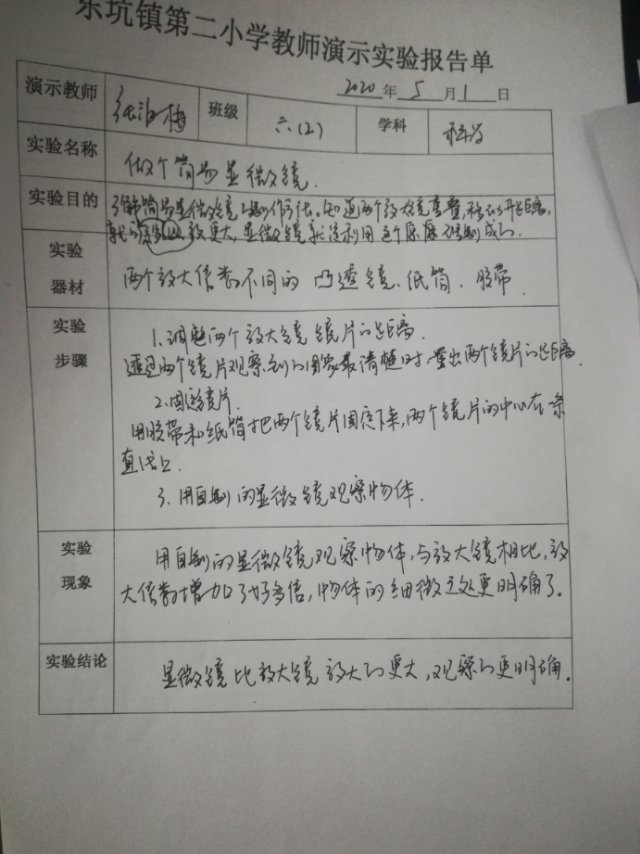 东坑镇第二小学教师演示实验报告单
2020年5月1日
演示教师 张海梅 班级 六(2) 学科 科学
实验名称 做个简易显微镜.
实验目的 了解简易显微镜制作方法。知道两个放大镜重叠,移动开距离,
放更大,显微镜就是利用这个原原理制成的.
实验
器材
两个放大倍数不同的凸透镜、纸筒、胶带
实验
步骤
1.调整两个放大镜镜片的距离.
透过两个镜片观察到的图象最清楚时量出两个镜片的距离.
2.固定镜片.
用胶带和纸筒把两个镜片固定下来,两个镜片的中心在一条
直线上.
3.用自制的显微镜观察物体.
实验
现象
用自制的显微镜观察物体,与放大镜相比,放
大倍数增加了好多倍,物体的细微之处更明确了.
实验结论 显微镜比放大镜放大的更大,观察的更明确.